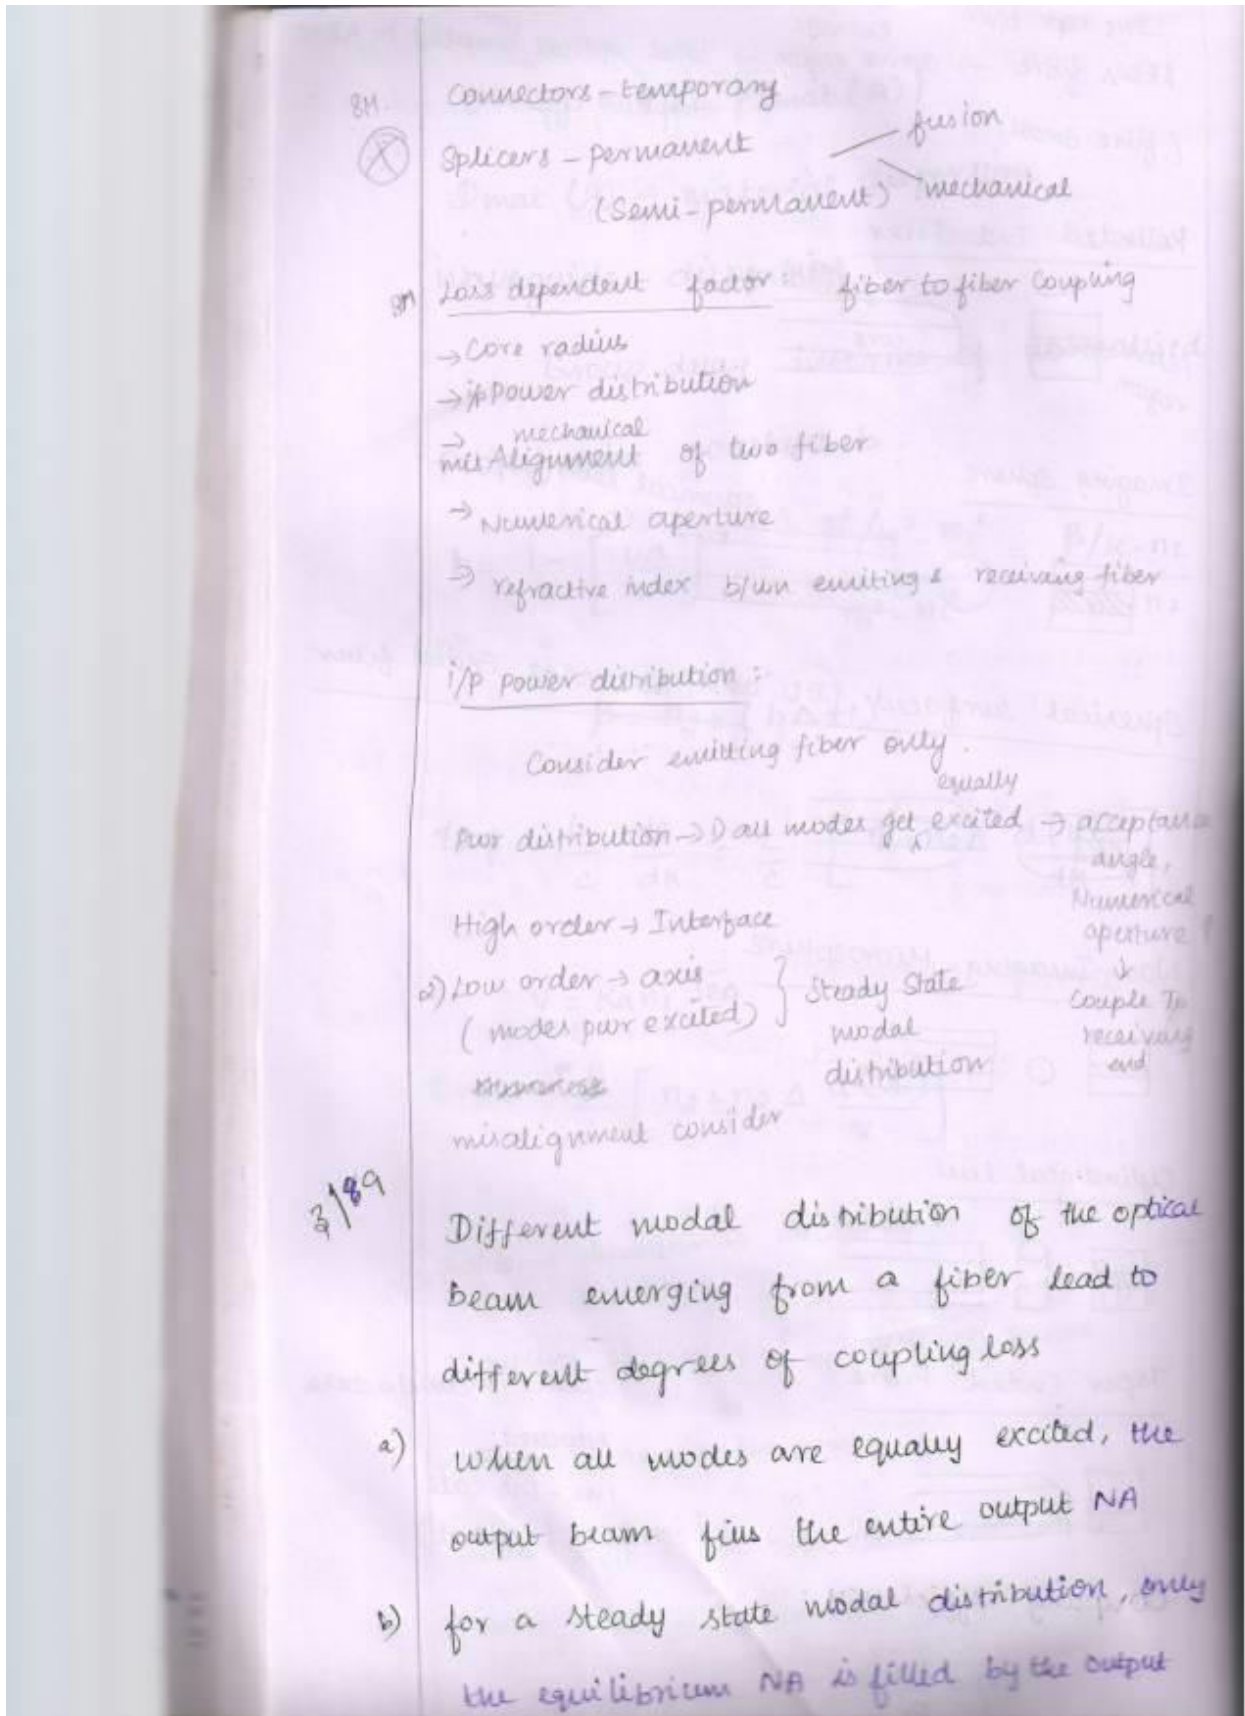 8M
connectors - temporary
Splicers - permanent
fusion
(Semi - permanent)
mechanical
8M
Loss dependent factor : fiber to fiber coupling
→ Core radius
→ i/p Power distribution
→ mechanical
mis Alignment of two fiber
→ Numerical aperture
→ refractive index b/wn emitting & receiving fiber
i/p power distribution :
Consider emitting fiber only.
equally
Pwr distribution → 1) all modes get excited → acceptance
angle,
Numerical
aperture
↓
Couple To
receiving
end
High order → Interface
2) Low order → axis
( modes pwr excited)
Steady State
modal
distribution
misalignment consider
Different modal distribution of the optical
beam emerging from a fiber lead to
different degrees of coupling loss
a) when all modes are equally excited, the
output beam fills the entire output NA
b) for a steady state modal distribution, only
the equilibrium NA is filled by the output